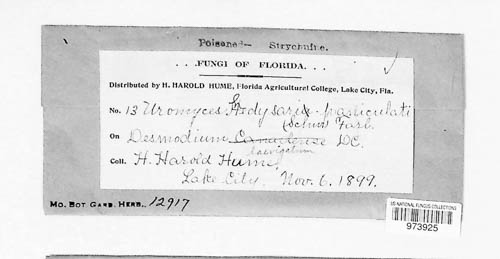 Poisoned— Strychnine.
...FUNGI OF FLORIDA...
Distributed by H. HAROLD HUME, Florida Agricultural College, Lake City, Fla.
No. 13 Uromyces Hedysari-paniculati
(Schw) Farl.
On Desmodium Canadense DC.
laevigatum
Coll. H. Harold Hume
Lake City. Nov. 6. 1899.
MO. BOT. GARD. HERB.. 12917
US NATIONAL FUNGUS COLLECTIONS
973925